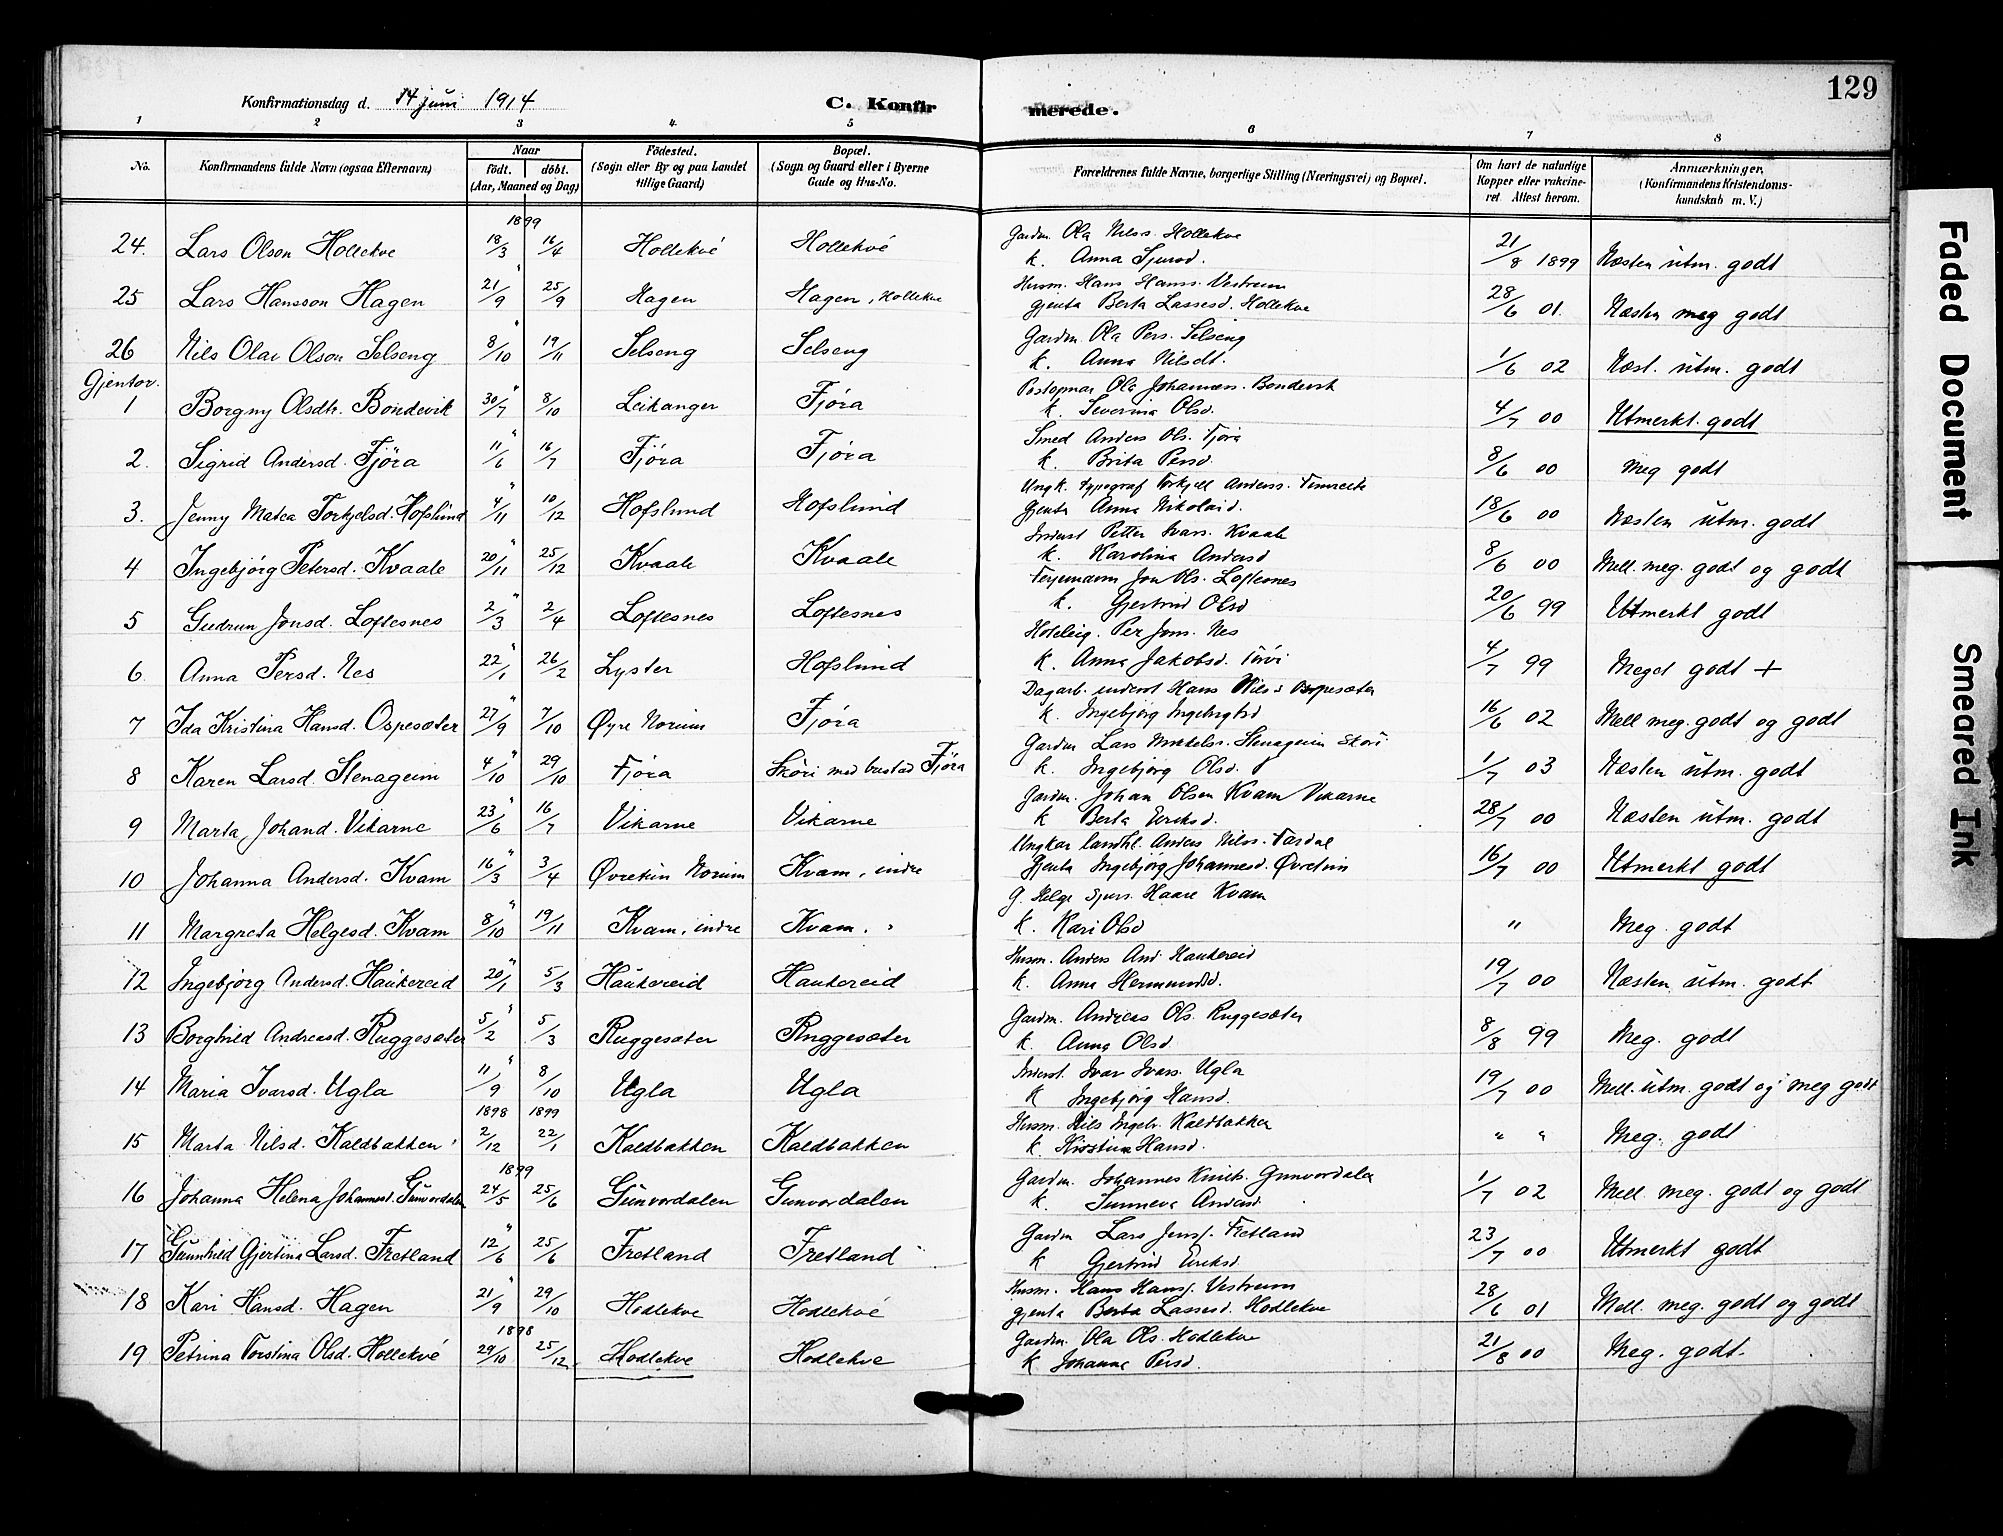 129
Konfirmationsdag d. 14 juni 1914 C. Konfir merede.
1 2 3 4 5 6 7 8
No. Konfirmandens fulde Navn (ogsaa Efternavn) Naar født. døbt. (Aar, Maaned og Dag) Fødested. (Sogn eller By og paa Landet tillige Gaard) Bopæl. (Sogn og Gaard eller i Byerne Gade og Hus-No. Forældrenes fulde Navne, borgerlige Stilling (Næringsvei) og Bopæl. Om havt de naturlige Kopper eller vakcineret Attest herom. Anmærkninger, (Konfirmandens Kristendomskundskab m. V.)
1899
24. Lars Olson Hollekve 18/3 16/4 Hollekvé Hollekvé Gardm. Ola Nilss. Hollekve
k. Anna Sjursd. 21/8 1899 Næsten utm. godt
25 Lars Hansson Hagen 21/9 25/9 Hagen Hagen, Hollekve Husm. Hans Hanss. Vestrum
gjenta Berta Lassesd. Hollekve 28/6 01. Næsten meg godt
26 Nils Olav Olson Selseng 8/10 19/11 Selseng Selseng Gardm. Ola Pers. Selseng
k. Anna Nilsdt. 1/6 02 Næst. utm. godt
Gjentor.
1 Borgny Olsdtr. Bondevik 30/7 8/10 Leikanger Fjöra Postopnar Ola Johanness. Bondevik
k. Severina Olsd. 4/7 00 Utmerkt. godt
2. Sigrid Andersd. Fjöra 11/6 16/7 Fjöra Fjöra Smed Anders Ols. Fjöra
k. Brita Persd. 8/6 00 meg godt
3. Jenny Matea Torkjelsd. Hofslund 4/11 10/12 Hofslund Hofslund Ungk. typograf Torkjell Anderss. Timreite
gjenta Anna Nikolaid. 18/6 00 Næsten utm. godt
4 Ingebjörg Petersd. Kvaale 20/11 25/12 Kvaale Kvaale Inderst Petter Ivars. Kvaale
k. Karolina Andersd 8/6 00 Mell. meg. godt og godt
5 Gudrun Jonsd. Loftesnes 2/3 2/4 Loftesnes Loftesnes Ferjemann Jon Ols. Loftesnes
k. Gjertrud Olsd 20/6 99 Utmerkt godt
6 Anna Persd. Nes 22/1 26/2 Lyster Hofslund Hoteleig. Per Jons. Nes
k. Anna Jakobsd. 4/7 99 Meget godt +
7 Ida Kristina Hansd. Ospesæter 27/9 7/10 Øyre Norum Fjöra Dagarb. inderst Hans Nils. Ospesæter
k. Ingebjörg Ingebrigtsd 16/6 02 Mell meg. godt og godt
8 Karen Larsd. Stenageim 4/10 29/10 Fjöra Sköri med bustad Fjöra Gardm Lars Mikelss. Stenageim Sköri
k. Ingebjörg Olsd. 1/7 03 Næsten utm. godt
9 Marta Johand. Vikarne 23/6 16/7 Vikarne Vikarne Gardm. Johan Olsen Kvam Vikarne
k Berta Eriksd. 28/7 00 Næsten utm. godt
10 Johanna Andersd. Kvam 16/3 3/4 Øvretun Norum Kvam, indre Ungkar landhl. Anders Nilss.
Gjenta Ingebjörg Johannesd. Øvretun 16/7 00 Utmerkt godt
11 Margreta Helgesd. Kvam 8/10 19/11 Kvam, indre Kvam. " G. Helge Sjurs. Haave Kvam
k. Kari Olsd " Meg. godt
12 Ingebjörg Andersd. Haukereid 20/1 5/3 Haukereid Haukereid Husm. Anders And. Haukereid
k. Anna Hermundsd. 19/7 00 Næsten utm. godt
13 Borghild Andreasd. Ruggesæter 5/2 5/3 Ruggesæter Ruggesæter Gardm. Andreas Ols. Ruggesæter
k. Anna Olsd. 8/8 99 Meg. godt
14 Maria Ivarsd. Ugla 11/9 8/10 Ugla Ugla Inderst. Ivar Ivars. Ugla
k Ingebjörg Hansd. 19/7 00 Mell. utm. godt og meg godt
1898 1899
15 Marta Nilsd. Kaldbakken 2/12 22/1 Kaldbakken Kaldbakken Husm. Nils Ingebr. Kaldbakken
k Kristina Hansd. " " Meg. godt
1899
16 Johanna Helena Johannesd. Gunvordalen 24/5 25/6 Gunvordalen Gunvordalen Gardm. Johannes Gunvordalen
k. Sunneva Andersd 1/7 02 Mell. meg. godt og godt
17 Gunhild Gjertina Larsd. Fretland 12/6 25/6 Fretland Fretland Gardm Lars Jens. Fretland
k Gjertrud Eriksd 23/7 00 Utmerkt godt
18 Kari Hansd. Hagen 21/9 29/10 Hodlekve Hodlekvé Husm. Hans Hans. Vestrum
gjenta Berta Lassesd. Hodlekve 28/6 01 Mell. meg. godt og godt
1898
19 Petrina Torstina Olsd. Hollekvé 29/10 25/12 Hodlekve Hodlekve Gardm. Ola Ols. Hodlekve
k Johanna Persd. 21/8 00 Meg. godt.
Faded Document
Smeared Ink